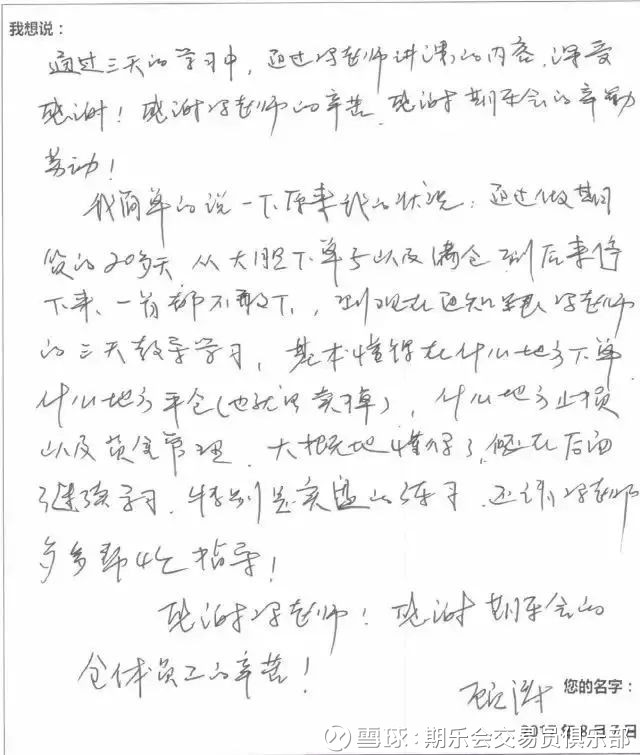 我想说：
通过三天的学习中，通过冯老师讲课的内容，深受
感谢！感谢冯老师的辛苦，感谢期乐会的辛勤
劳动！
我简单的说一下原来我的状况，通过做期
货的20多天 从大胆下单 以及满仓 到后来停
下来、一首都不敢下，到现在通 冯老师
的三天教导学习，基本懂得在什么地方下单
什么地方平仓（也就是卖掉），什么地方止损
以及资金管理 大概地懂得了 在后面
继续学习，特别是实盘的练习，还请冯老师
多多帮忙指导！
感谢冯老师！感谢期乐会的
全体员工的辛苦！
您的名字：
年8月7日
雪球：期乐会交易员俱乐部